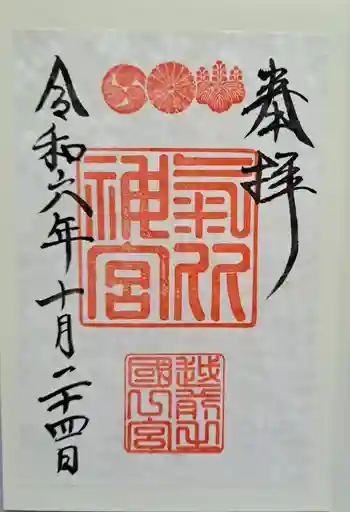 奉拝
氣比
神宮
越前之
令和六年十月二十四日